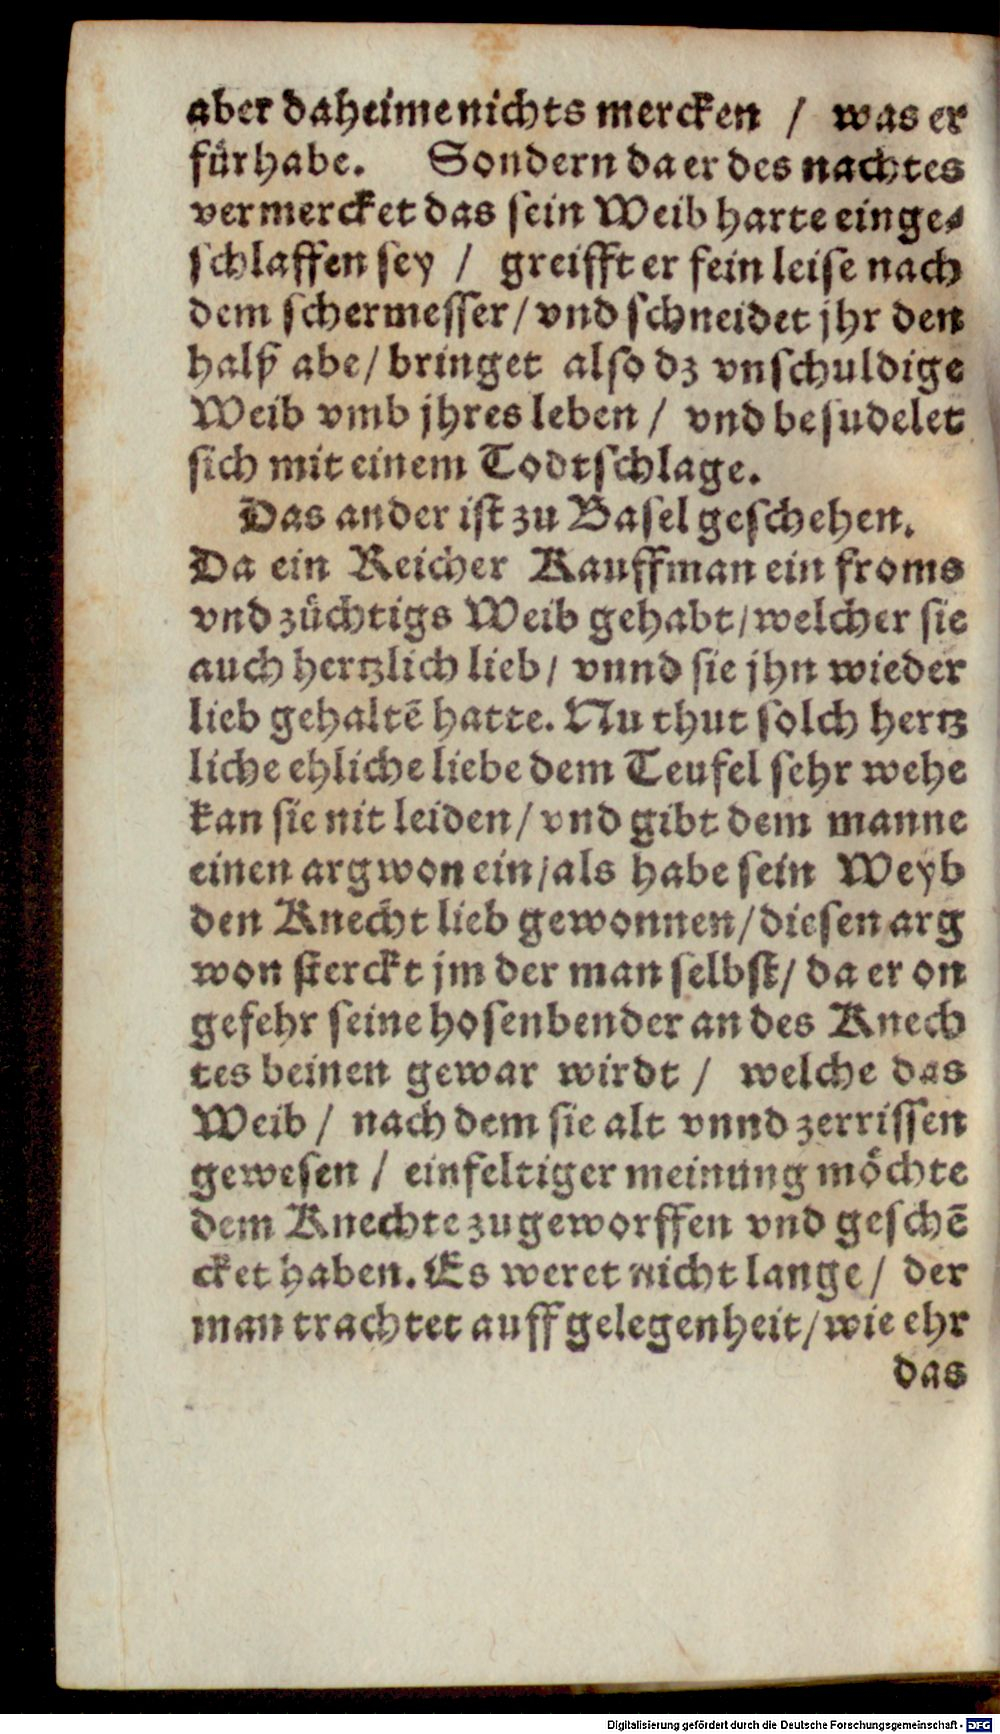 aber daheime nichts mercken / was er
fürhabe. Sondern da er des nachtes
vermercket das sein Weib harte einge⸗
schlaffen sey / greifft er fein leise nach
dem schermesser / vnd schneidet jhr den
halß abe / bringet also dz vnschuldige
Weib vmb jhres leben / vnd besudelet
sich mit einem Todtschlage.
Das ander ist zu Basel geschehen.
Da ein Reicher Kauffman ein froms
vnd züchtigs Weib gehabt / welcher sie
auch hertzlich lieb / vnnd sie jhn wieder
lieb gehaltē hatte. Nu thut solch hertz
liche ehliche liebe dem Teufel sehr wehe
kan sie nit leiden / vnd gibt dem manne
einen argwon ein / als habe sein Weyb
den Knecht lieb gewonnen / diesen arg
won sterckt jm der man selbst / da er on
gefehr seine hosenbender an des Knech
tes beinen gewar wirdt / welche das
Weib / nach dem sie alt vnnd zerrissen
gewesen / einfeltiger meinung möchte
dem Knechte zugeworffen vnd geschē
cket haben. Es weret nicht lange / der
man trachtet auff gelegenheit / wie ehr
das
Digitalisierung gefördert durch die Deutsche Forschungsgemeinschaft - DFG